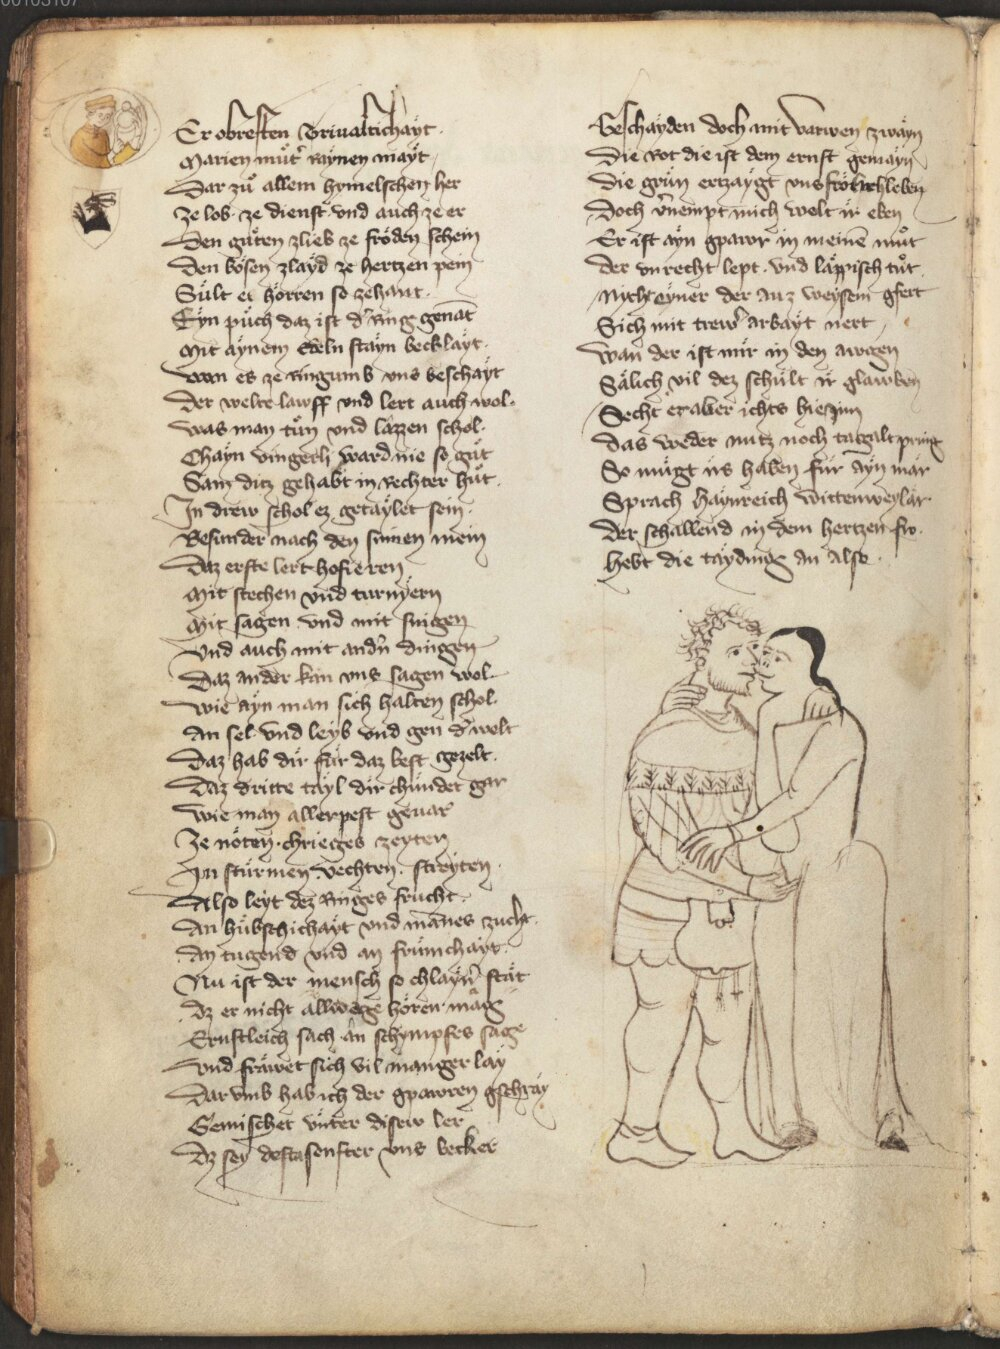 00103107
Er obresten Trivaltichäyt
Marien muͦter raynen mayt
Dar zuͦ allem hymelschen her
Ze lob ze dienst und auch ze er
Den guͦten zlieb ze fröden schein
Den bösen zlayd ze hertzen pein
Sült er hörren so zehant
Eyn puͦch daz ist d' Ring genāt
Mit aynem edeln stayn becklayt
Wan es ze ringumb uns beschayt
Der welte lawff und lert auch wol
Was man tuͦn und lazzen schol
Chayn vingerli ward nie so guͦt
Sam ditz gehabt in rechter huͦt
In drew schol ez getaylet sein
Besunder nach den sinnen mein
Daz erste lert hofieren
Mit stechen und turnyern
Mit sagen und mit singen
Und auch mit and'n dingen
Daz ander kan uns sagen wol
Wie ayn man sich halten schol
An sel und leyb und gen d' welt
Daz hab dir für daz best gezelt
Daz dritte tayl dir chündet gar
Wie man allerpest gevar
Ze nöten chrieges zeyten
In stürmen vechten streyten
Also leyt dez Ringes frucht
An hübschichayt und mannes zucht
An tugend und an frümchayt
Nu ist der mensch so chlayn' stät
Dz er nicht allwege hören mag
Ernstleich sach an schympfes sage
Und fräwet sich vil manger lay
Dar umb hab ich der gpawren gschray
Gemischet unter disew ler
Dz sey dest senfter uns becker
Beschayden doch mit varwen zwayn
Die rot die ist dem ernst gemayn
Die grün ertzaygt uns frölichs leben
Doch v'nempt mich welt ir eben
Er ist ayn gpawr in meinē muͦt
Der unrecht lept und läppisch tuͦt
Nicht eyner der auz weysem gfert
Sich mit trewer arbayt nert
Wan der ist mir in den awgen
Sälich vil dez schült ir glawben
Secht er aber ichts hie inn
Das weder nutz noch tagalt pring
So mügt irs haben für ayn mär
Sprach Haynreich Wittenweylär
Der schallend in dem hertzen fro
Hebt die tayding an also